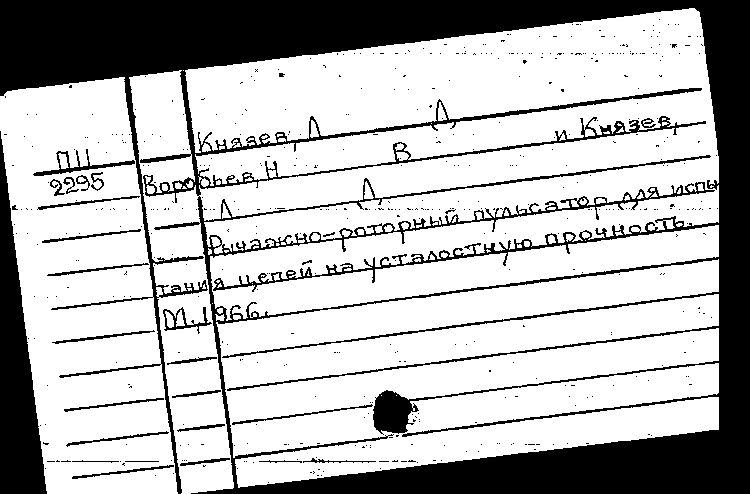 Князев, Л Д
П11
2295
Воробьев, Н В и Князев,
Л Д
Рычажно-роторный пульсатор для испы
тания цепей на усталостную прочность.
М., 1966.